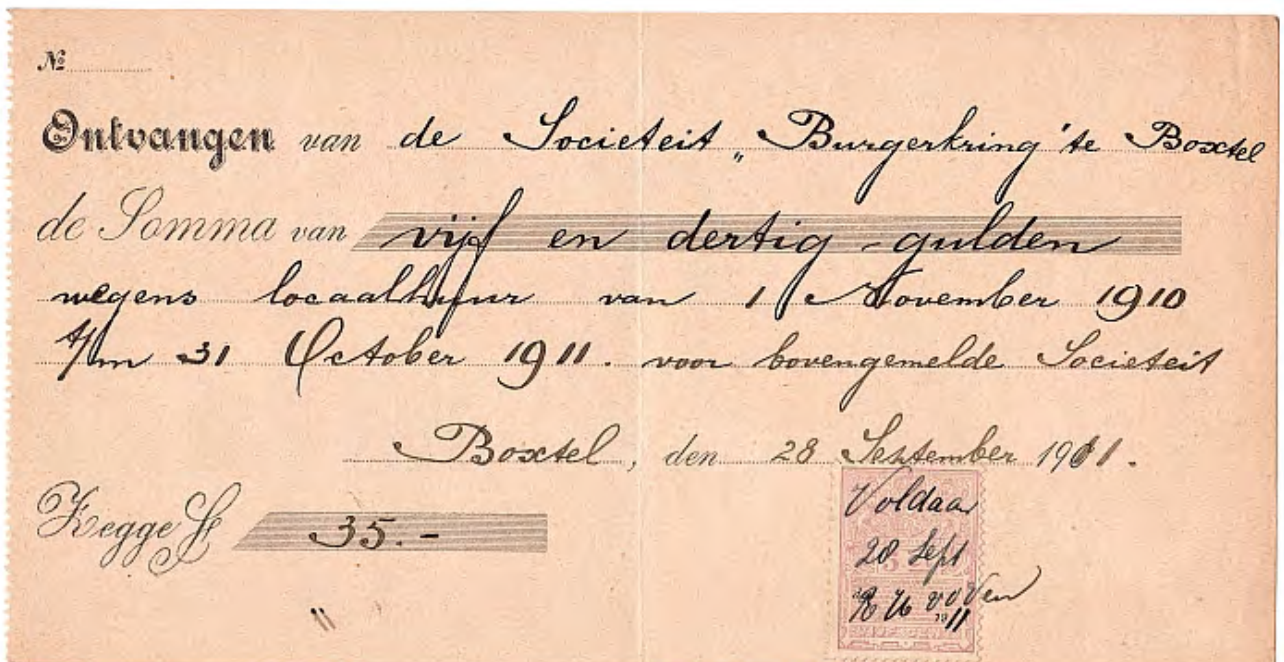 No
Ontvangen van de Societeit „Burgerkring" te Boxtel
de Somma van vijf en dertig gulden
wegens locaalhuur van 1 November 1910
t/m 31 October 1911. voor bovengemelde Societeit
Boxtel, den 28 September 1911.
Zegge ƒ 35.-
Voldaan
28 Sept
1911